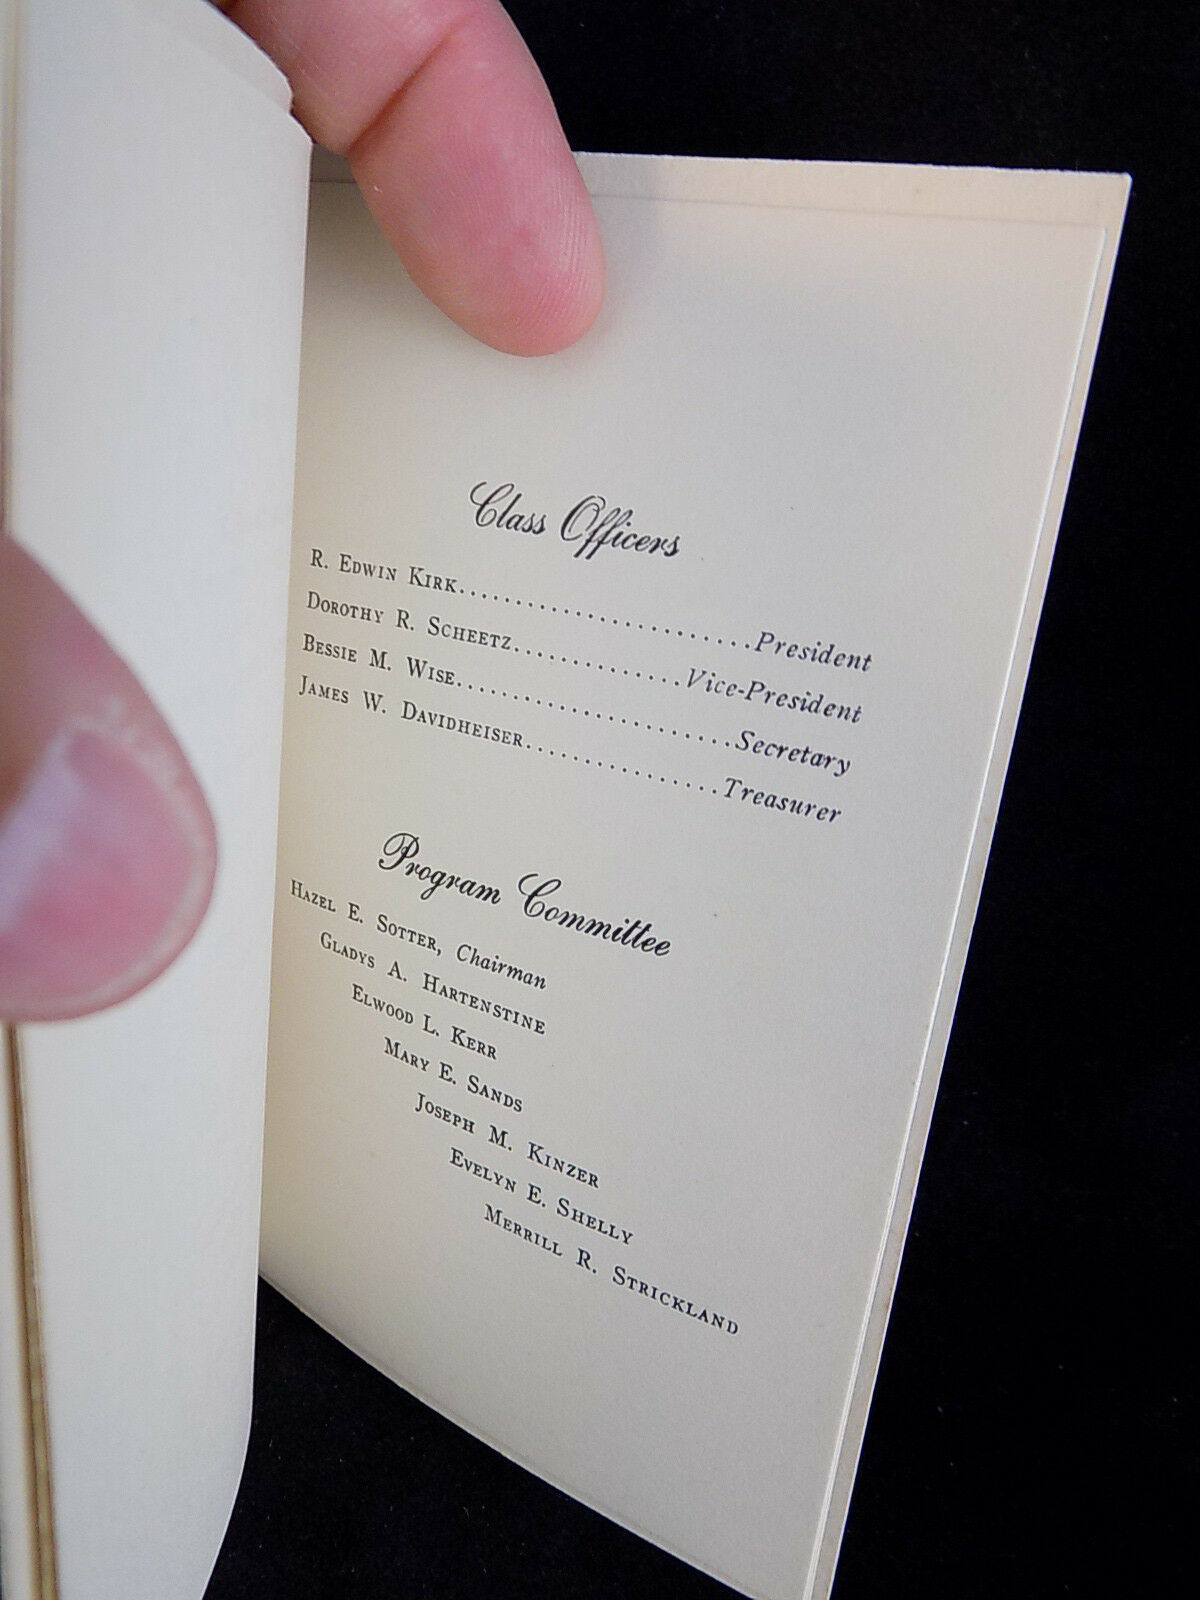 Class Officers
R. Edwin Kirk..........................President
Dorothy R. Scheetz...............Vice-President
Bessie M. Wise.........................Secretary
James W. Davidheiser.................Treasurer
Program Committee
Hazel E. Sotter, Chairman
Gladys A. Hartenstine
Elwood L. Kerr
Mary E. Sands
Joseph M. Kinzer
Evelyn E. Shelly
Merrill R. Strickland